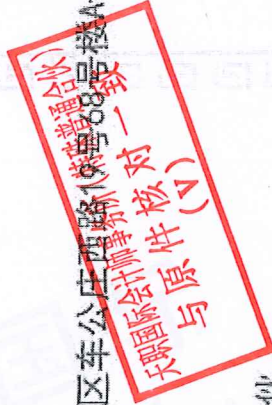 区车公庄西路19号68号楼A
天职国际会计师事务所(特殊普通合伙)
与原件核对一致
(V)